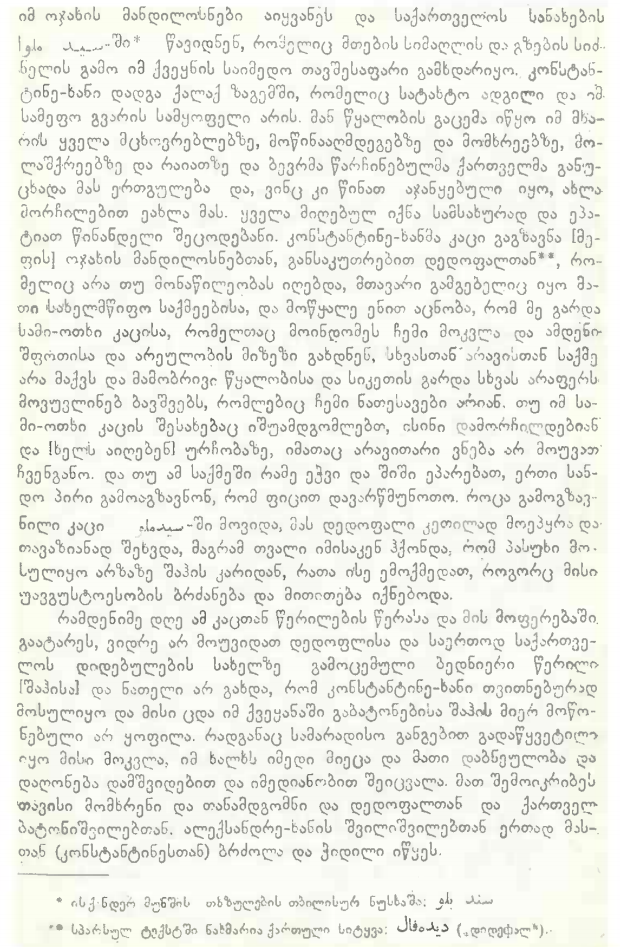 იმ ოჯახის მანდილოსნები აიყვანეს და საქართველოს სანახების
[سپید ماو]-ში* წავიდნენ, რომელიც მთების სიმაღლის და გზების სიძ-
ნელის გამო იმ ქვეყნის საიმედო თავშესაფარი გამხდარიყო. კონსტან-
ტინე-ხანი დადგა ქალაქ ზაგემში, რომელიც სატახტო ადგილი და იმ
სამეფო გვარის სამყოფელი არის. მან წყალობის გაცემა იწყო იმ მხა-
რის ყველა მცხოვრებლებზე, მოწინააღმდეგებზე და მომხრეებზე, მო-
ლაშქრეებზე და რაიათზე და ბევრმა წარჩინებულმა ქართველმა განუ-
ცხადა მას ერთგულება და, ვინც კი წინათ აჯანყებული იყო, ახლა
მორჩილებით ეახლა მას. ყველა მიღებულ იქნა სამსახურად და ეპა-
ტიათ წინანდელი შეცოდებანი. კონსტანტინე-ხანმა კაცი გაგზავნა [მე-
ფის] ოჯახის მანდილოსნებთან, განსაკუთრებით დედოფალთან**, რო-
მელიც არა თუ მონაწილეობას იღებდა, მთავარი გამგებელიც იყო მა-
თი სახელმწიფო საქმეებისა, და მოწყალე ენით აცნობა, რომ მე გარდა
სამი-ოთხი კაცისა, რომელთაც მოინდომეს ჩემი მოკვლა და ამდენი
შფოთისა და არეულობის მიზეზი გახდნენ, სხვასთან არავისთან საქმე
არა მაქვს და მამობრივი წყალობისა და სიკეთის გარდა სხვას არაფერს
მოვუვლინებ ბავშვებს, რომლებიც ჩემი ნათესავები არიან. თუ იმ სა-
მი-ოთხი კაცის შესახებაც იშუამდგომლებთ, ისინი დამორჩილდებიან
და [ხელს აიღებენ] ურჩობაზე, იმათაც არავითარი ვნება არ მოუვათ
ჩვენგანო. და თუ ამ საქმეში რამე ეჭვი და შიში ეპარებათ, ერთი სან-
დო პირი გამოაგზავნონ, რომ ფიცით დავარწმუნოთო. როცა გამოგზავ-
ნილი კაცი -ში მოვიდა, მას დედოფალი კეთილად მოეპყრა და
თავაზიანად შეხვდა, მაგრამ თვალი იმისაკენ ჰქონდა, რომ პასუხი მო-
სულიყო არზაზე შაჰის კარიდან, რათა ისე ემოქმედათ, როგორც მისი
უავგუსტოესობის ბრძანება და მითითება იქნებოდა.
რამდენიმე დღე ამ კაცთან წერილების წერასა და მის მოფერებაში
გაატარეს, ვიდრე არ მოუვიდათ დედოფლისა და საერთოდ საქართვე-
ლოს დიდებულების სახელზე გამოცემული ბედნიერი წერილი
[შაჰისა] და ნათელი არ გახდა, რომ კონსტანტინე-ხანი თვითნებურად
მოსულიყო და მისი ცდა იმ ქვეყანაში გაბატონებისა შაჰის მიერ მოწო-
ნებული არ ყოფილა. რადგანაც სამარადისო განგებით გადაწყვეტილი
იყო მისი მოკვლა, იმ ხალხს იმედი მიეცა და მათი დაბნეულობა და
დაღონება დამშვიდებით და იმედიანობით შეიცვალა. მათ შემოიკრიბეს
თავისი მომხრენი და თანამდგომნი და დედოფალთან და ქართველ
ბატონიშვილებთან, ალექსანდრე-ხანის შვილიშვილებთან ერთად მას-
თან (კონსტანტინესთან) ბრძოლა და ჭიდილი იწყეს.
* ისქანდერ მუნშის თხზულების თბილისურ ნუსხაშია:
** სპარსულ ტექსტში ნახმარია ქართული სიტყვა: دیده‌فال („დიდეფალ“).